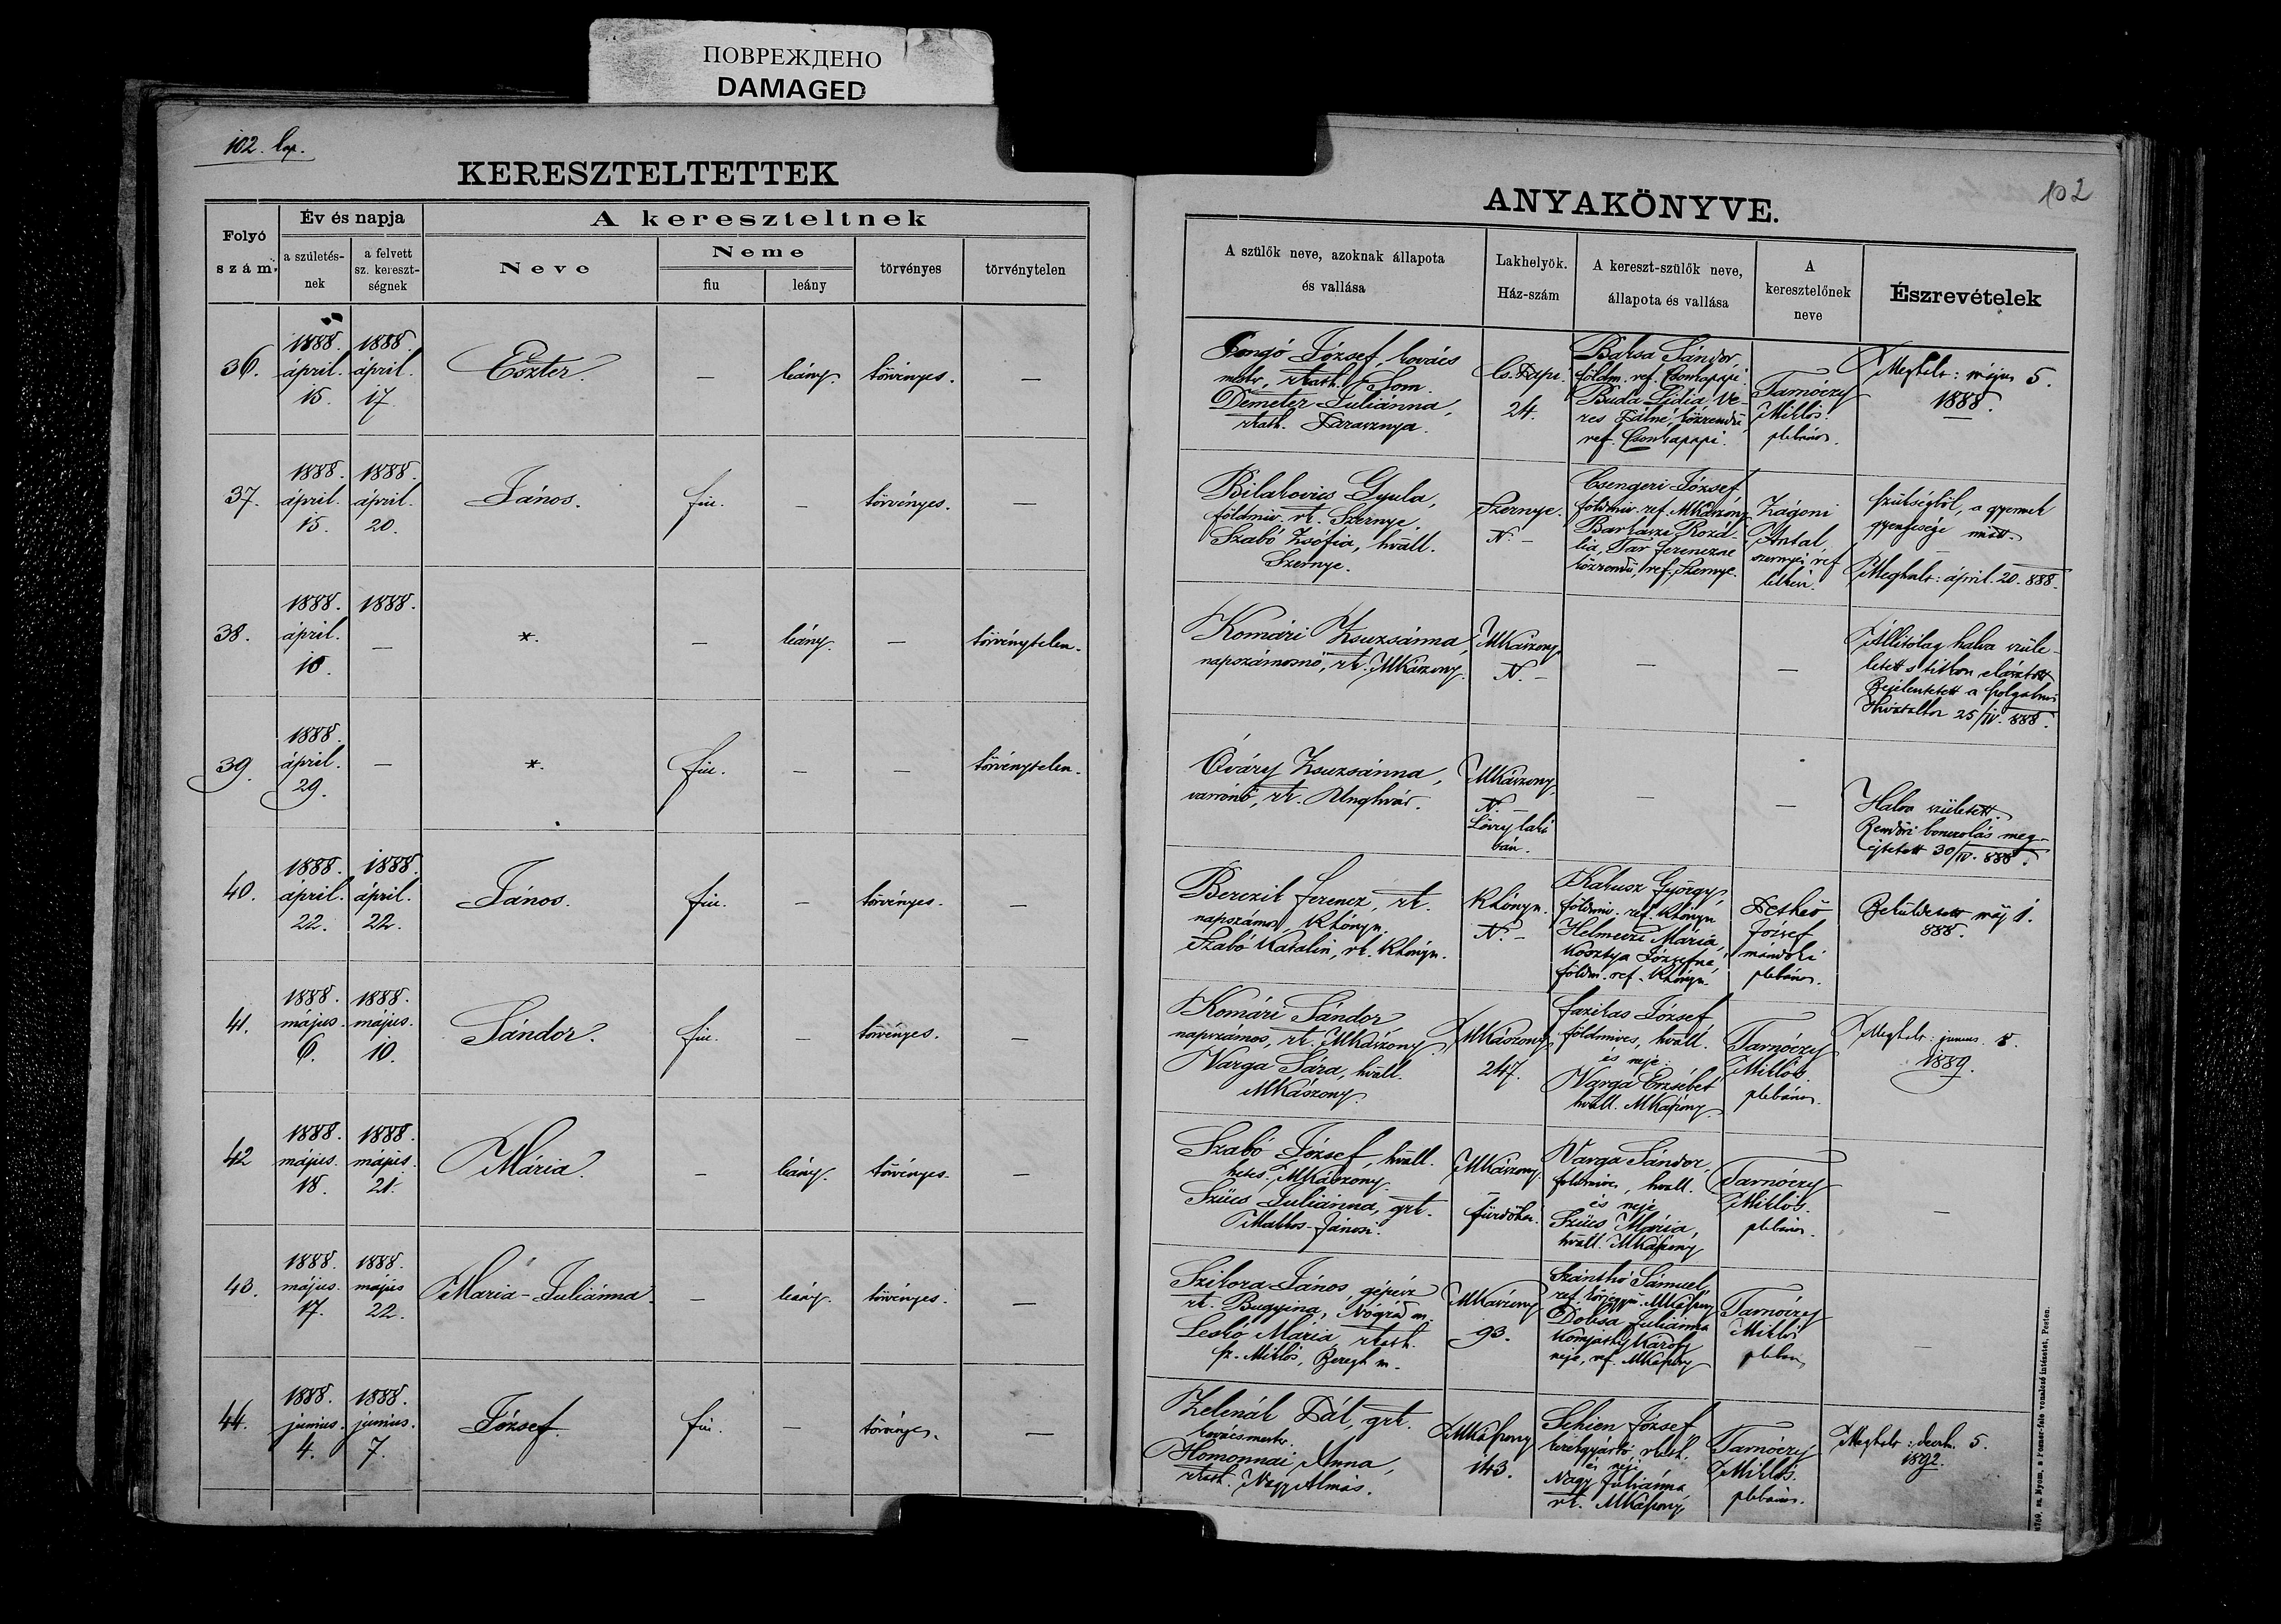 ПОВРЕЖДЕНО
DAMAGED
102. lap.
KERESZTELTETTEK
Folyó
szám.
Év és napja
a születés-
nek
a felvett
sz. kereszt-
ségnek
A kereszteltnek
Neve
Neme
fiu
leány
törvényes
törvénytelen
ANYAKÖNYVE.
102
A szülők neve, azoknak állapota
és vallása
Lakhelyök.
Ház-szám
A kereszt-szülők neve,
állapota és vallása
A
keresztelőnek
neve
Észrevételek
36.
1888.
ápril.
15.
1888.
ápril.
17.
Eszter.
—
leány.
törvényes.
—
Gongó József, kovács
mestr, rkath. Som.
Demeter Juliánna,
rkath. Harasznya.
Cs. Papi.
24.
Baksa Sándor,
földm. ref. Csonkapapi.
Buda Lidia Ve-
res Pálné, közrendü,
ref. Csonkapapi.
Tarnóczy
Miklós.
plébános.
Meghalt: május 5.
1888.
37.
1888.
ápril.
15.
1888.
ápril.
20.
János.
fiu.
—
törvényes.
—
Bilakovics Gyula,
földmiv. rk. Szernye.
Szabó Zsófia, hvall.
Szernye.
Szernye.
N. —
Csengeri József
földmiv. ref. MKászony
Barkaszi Rozá-
lia, Tar Ferenczné
közrendü, ref. Szernye.
Zágoni
Antal,
szernyei ref
lelkész.
Szükségből, a gyermek
gyengesége miatt.
Meghalt: ápril. 20. 888.
38.
1888.
ápril.
10.
1888.
—
*.
—
leány.
—
törvénytelen.
Komári Zsuzsánna,
napszámosnő, rk. MKászony.
MKászony
N. —
—
—
Állitólag halva szüle-
letett s titkon elásatott
Bejelentetett a szolgabirói
Hivataltol 25/IV. 888.
39.
1888.
ápril.
29.
—
*.
fiu.
—
—
törvénytelen.
Óváry Zsuzsánna,
varrónő, rk. Unghvár.
MKászony
N. —
Lónyy laká
bán.
—
—
Halva született.
Rendőri bonczolás meg-
ejtetett 30/IV. 888.
40.
1888.
ápril.
22.
1888.
ápril.
22.
János.
fiu.
—
törvényes.
—
Berczik Ferencz, rk.
napszámos, Rkönyv.
Szabó Katalin, rk.
N. —
Kakusz György,
földmiv. ref.
Helmeczi Mária,
Kosztya Józsefné,
földm. ref.
Pethő
József
mándoki
plébános.
Beküldetett máj 1.
888.
41.
1888.
május.
6.
1888.
május.
10.
Sándor.
fiu.
—
törvényes.
—
Komári Sándor
napszámos, rk. MKászony.
Varga Sára, hvall.
MKászony.
MKászony
247.
Fazikas József
földmives, hvall.
és neje
Varga Erzsébet
hvall. MKászony.
Tarnóczy
Miklós.
plébános.
Meghalt: junius 8.
1889.
42
1888.
május.
18.
1888.
május.
21.
Mária.
—
leány.
törvényes.
—
Szabó József, hvall.
MKászony.
Szücs Juliánna, grk.
Makkos-Jánosi.
MKászony.
—
fürdőben.
Varga Sándor,
földmives, hvall.
és neje
Szücs Mária,
hvall. MKászony
Tarnóczy
Miklós.
plébános.
—
43.
1888.
május.
17.
1888.
május
22.
Mária-Juliánna.
—
leány.
törvényes.
—
Szikora János, gépész
rk. Bugyina, Nógrád m.
Leskó Mária, rkath.
sz. Miklós, Beregh m.
MKászony
93.
Szánthó Sámuel,
ref. MKászony
Dobsa Juliánna
Komjáthy Károly
neje, ref. MKászony
Tarnóczy
Miklós
plebános
—
44.
1888.
junius.
4.
1888.
junius.
7.
József.
fiu.
—
törvényes.
—
Zelenák Pál, grk.
kovácsmester.
Homonnai Anna,
rkath. Nagy Almás.
MKászony
143.
Schien József
rkath.
és neje
Nagy Juliánna
rk. MKászony
Tarnóczy
Miklós.
plébános.
Meghalt: decb. 5.
1892.